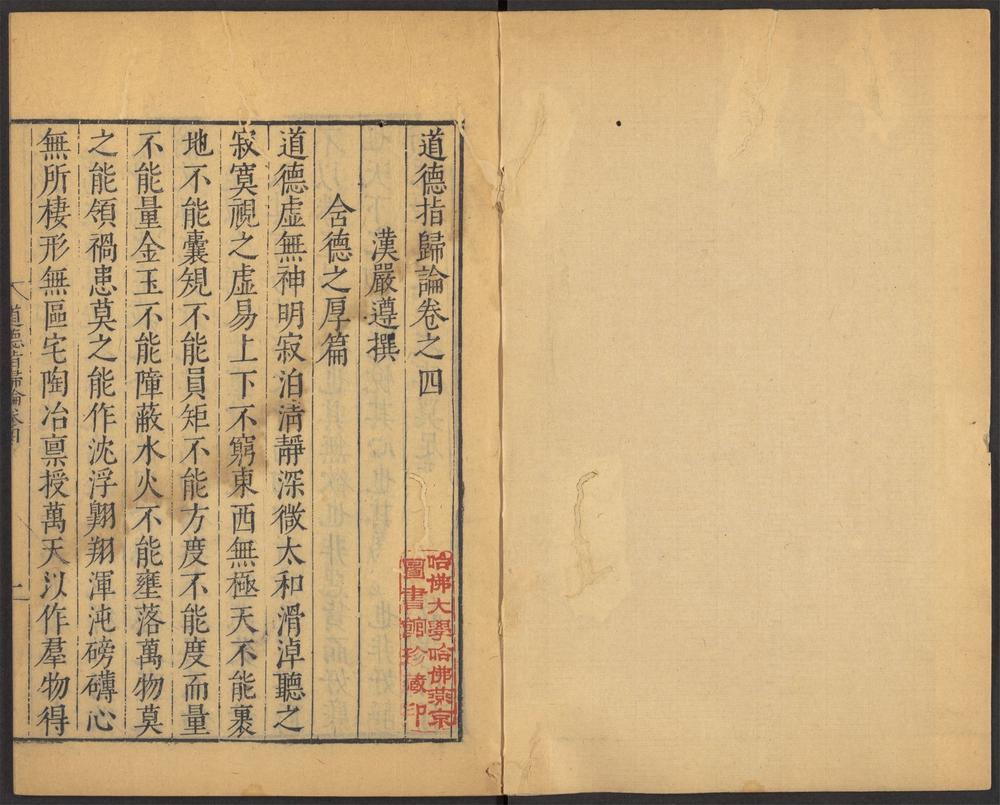 道德指歸論卷之四
漢嚴遵撰
含德之厚篇
道德虛無神明寂泊清靜深微太和滑淖聽之
寂寞視之虛易上下不窮東西無極天不能裹
地不能囊規不能員矩不能方度不能度而量
不能量金玉不能障蔽水火不能壅落萬物莫
之能領禍患莫之能作沈浮翺翔渾沌磅礴心
無所棲形無區宅陶冶禀授萬天以作羣物得
道德指歸論卷四
一
哈佛大學哈佛燕京
圖書館珍藏印